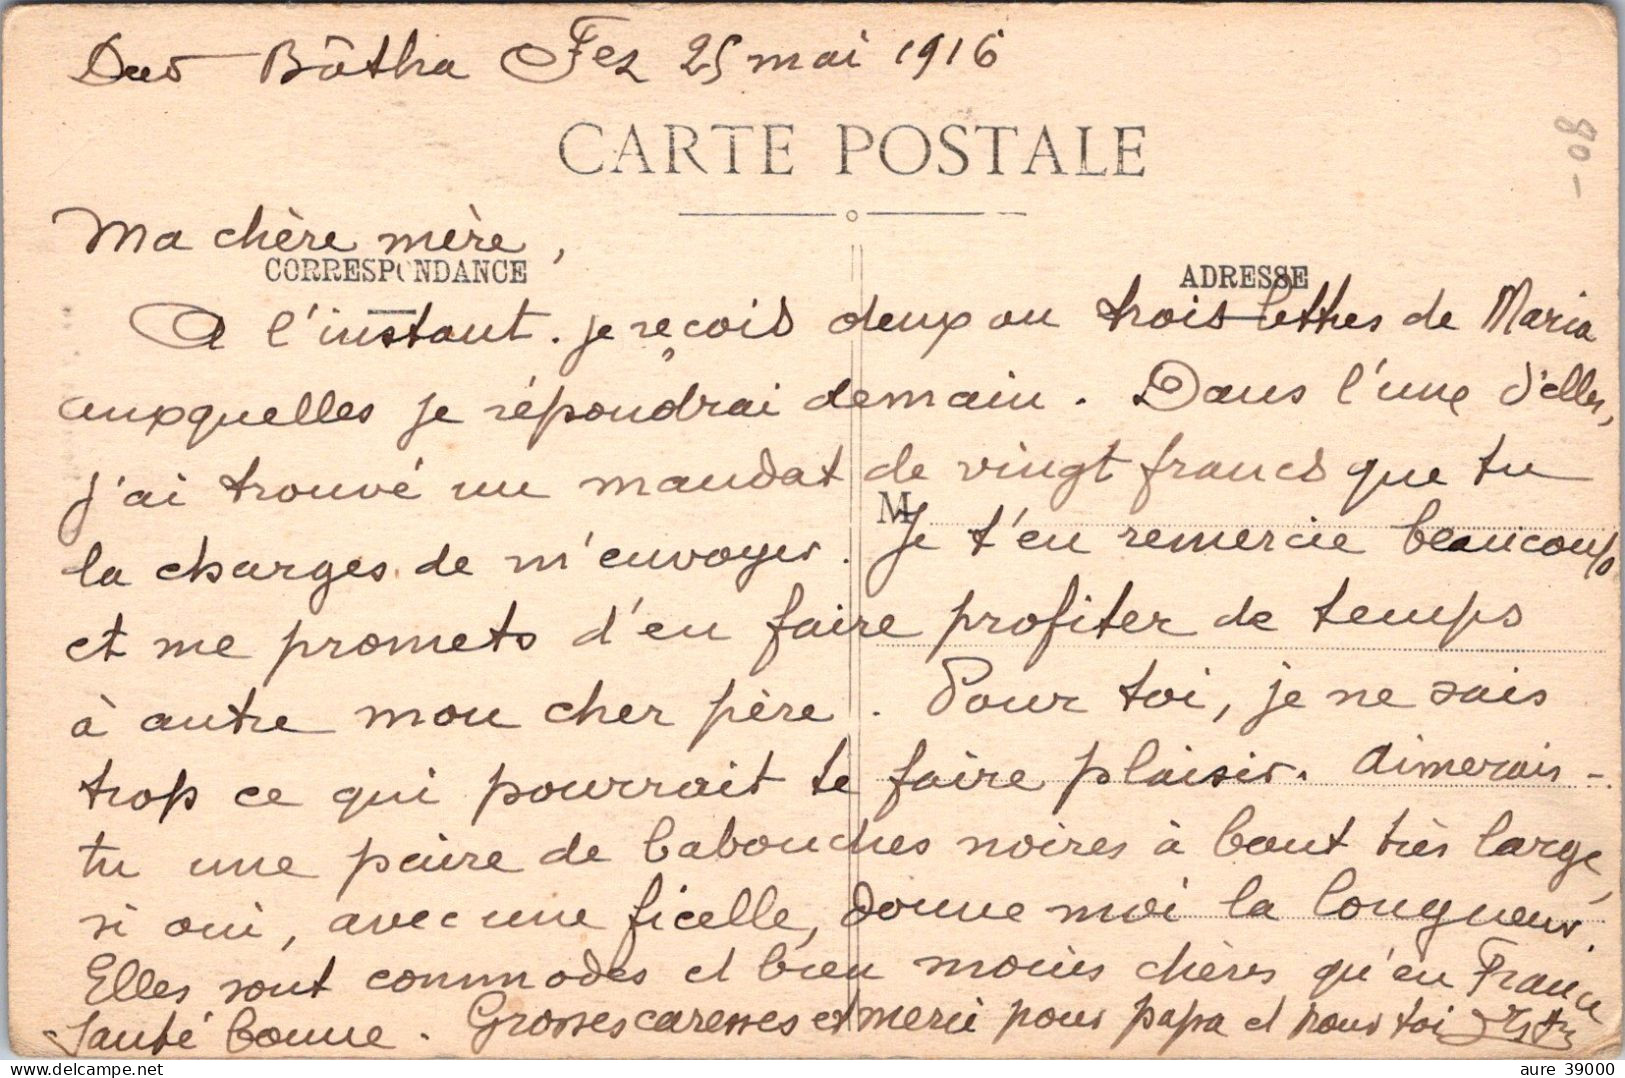 Dar Bâtha Fez 25 mai 1916
CARTE POSTALE
90-
Ma chère mère,
CORRESPONDANCE
ADRESSE
A l'instant. je reçois deux ou trois lettres de Maria
auxquelles je répondrai demain. Dans l'une d'elles,
j'ai trouvé un mandat de vingt francs que tu
M
la charges de m'envoyer. Je t'en remercie beaucoup
et me promets d'en faire profiter de temps
à autre mon cher père. Pour toi, je ne sais
trop ce qui pourrait te faire plaisir. Aimerais-
tu une paire de babouches noires à bout très large,
si oui, avec une ficelle, donne moi la longueur.
Elles sont commodes et bien moins chères qu'en France
Santé bonne. Grosses caresses et merci pour papa et pour toi
aure 39000